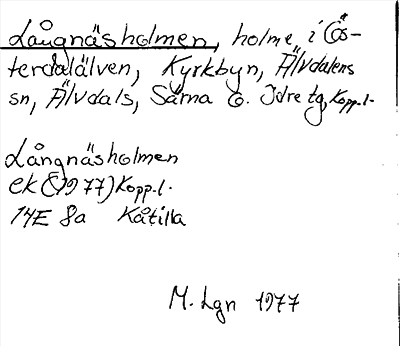 Långnäsholmen, holme, i Ös-
terdalälven, Kyrkbyn, Älvdalens
sn, Älvdals, Särna o. Idre tg, Kopp.l.
Långnäsholmen
ek (1977) Kopp.l.
14E 8a Kåtilla
M. Lgn 1977